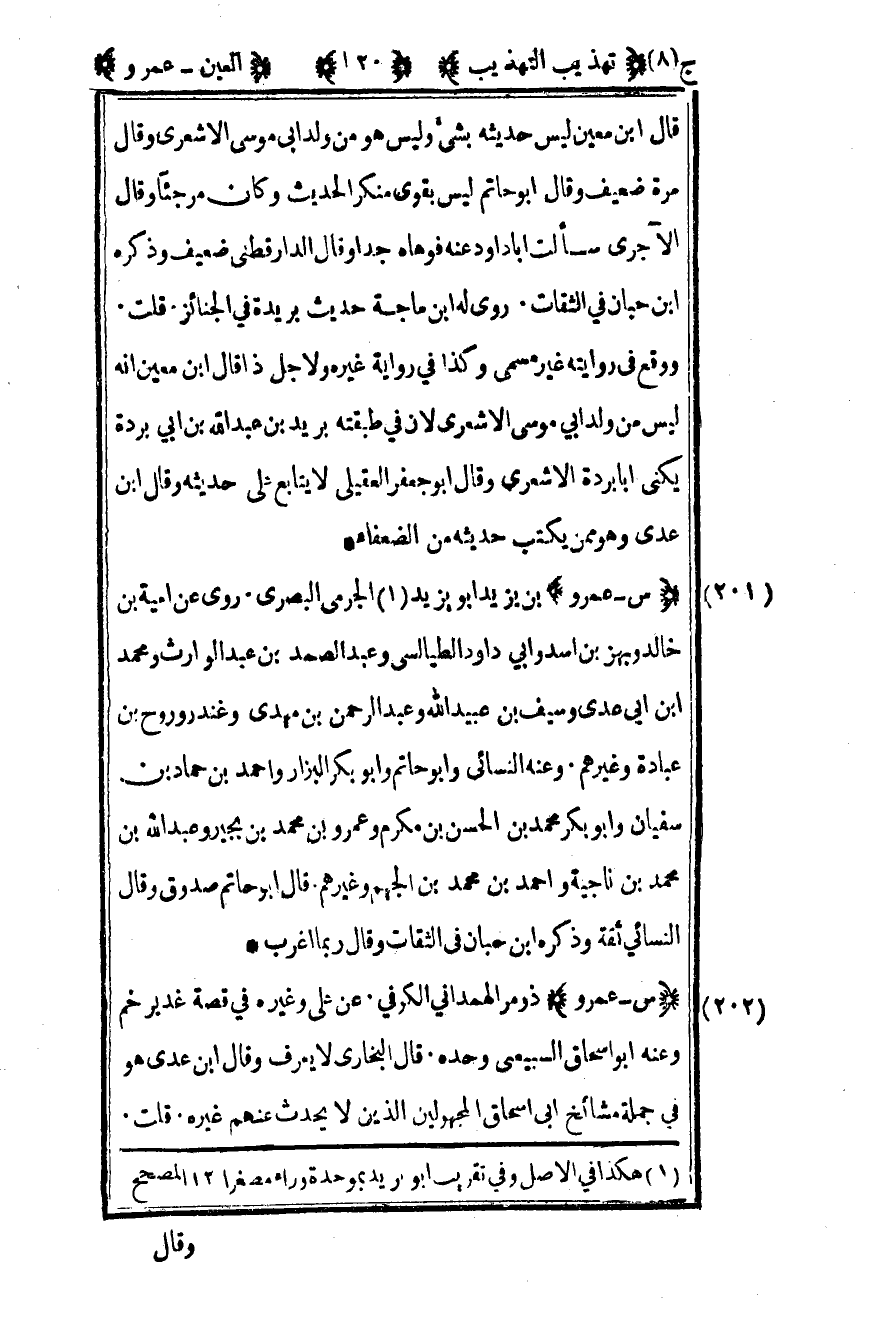 ج (٨) ﴿ تهذيب التهذيب ﴾ ﴿ ١٢٠ ﴾ ﴿ العين - عمرو ﴾
قال ابن معين ليس حديثه بشئ وليس هو من ولد ابى موسى الاشعرى وقال
مرة ضعيف وقال ابو حاتم ليس بقوى منكر الحديث وكان مرجئا وقال
الآجرى سألت ابا داود عنه فوهاه جدا وقال الدار قطنى ضعيف وذكره
ابن حبان في الثقات . روى له ابن ماجة حديث بريدة في الجنائز . قلت .
ووقع فى روايته غير مسمى وكذا في رواية غيره ولاجل ذا قال ابن معين انه
ليس من ولد ابي موسى الاشعرى لان في طبقته بريد بن عبد الله بن ابي بردة
يكنى ابا بردة الاشعري وقال ابو جعفر العقيلى لا يتابع على حديثه وقال ابن
عدى وهو ممن يكتب حديثه من الضعفاء •
(٢٠١) ﴿ س - عمرو ﴾ بن يزيد ابو يزيد (١) الجرمى البصرى . روى عن امية بن
خالد وبهز بن اسد وابي داود الطيالسى وعبد الصمد بن عبد الوارث ومحمد
ابن ابى عدى وسيف بن عبيد الله وعبد الرحمن بن مهدى وغندر وروح بن
عبادة وغيرهم . وعنه النسائى وابو حاتم وابو بكر البزار واحمد بن حماد بن
سفيان وابو بكر محمد بن الحسن بن مكرم وعمرو بن محمد بن بجير وعبد الله بن
محمد بن ناجية واحمد بن محمد بن الجهم وغيرهم . قال ابو حاتم صدوق وقال
النسائي ثقة وذكره ابن حبان فى الثقات وقال ربما اغرب •
(٢٠٢) ﴿ س - عمرو ﴾ ذو مر الهمداني الكوفي . عن على وغيره في قصة غدير خم
وعنه ابو اسحاق السبيعى وحده . قال البخارى لا يعرف وقال ابن عدى هو
في جملة مشائخ ابى اسحاق المجهولين الذين لا يحدث عنهم غيره . قلت .
(١) هكذا في الاصل وفي تقريب ابو بريد بموحدة وراء مصغرا ١٢ المصحح
وقال